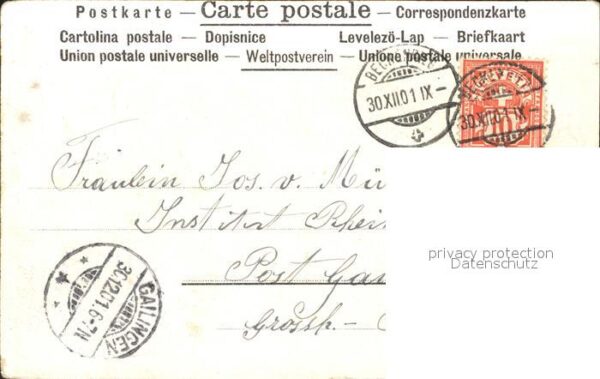 Postkarte — Carte postale — Correspondenzkarte
Cartolina postale — Dopisnice Levelezö-Lap — Briefkaart
Union postale universelle — Weltpostverein — Unione postale universale
30.XII.01 IX –
HELVETIA
30.XII.01 IX –
Fräulein Jos. v. Mü
Institut Rhei
privacy protection
Datenschutz
Post Gai
30.12.01.6-7N
GAILINGEN
Grossh.-